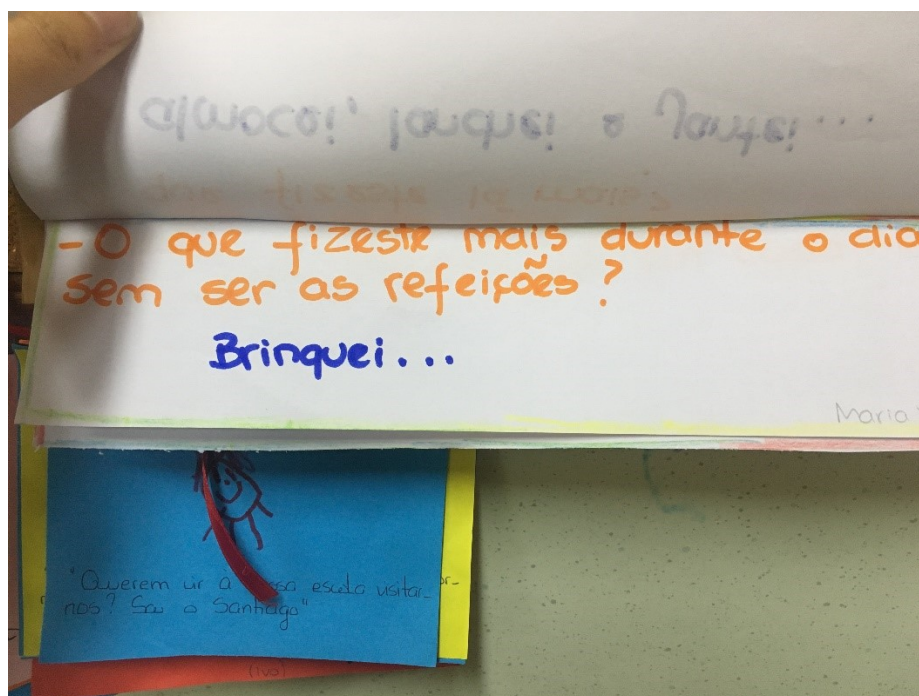 almocei, lanchei e Jantei...
- O que fizeste mais durante o dia
sem ser as refeições?
Brinquei...
Maria
"Querem vir a nossa escola visitar-
nos? Sou o Santiago"
(Ivo)